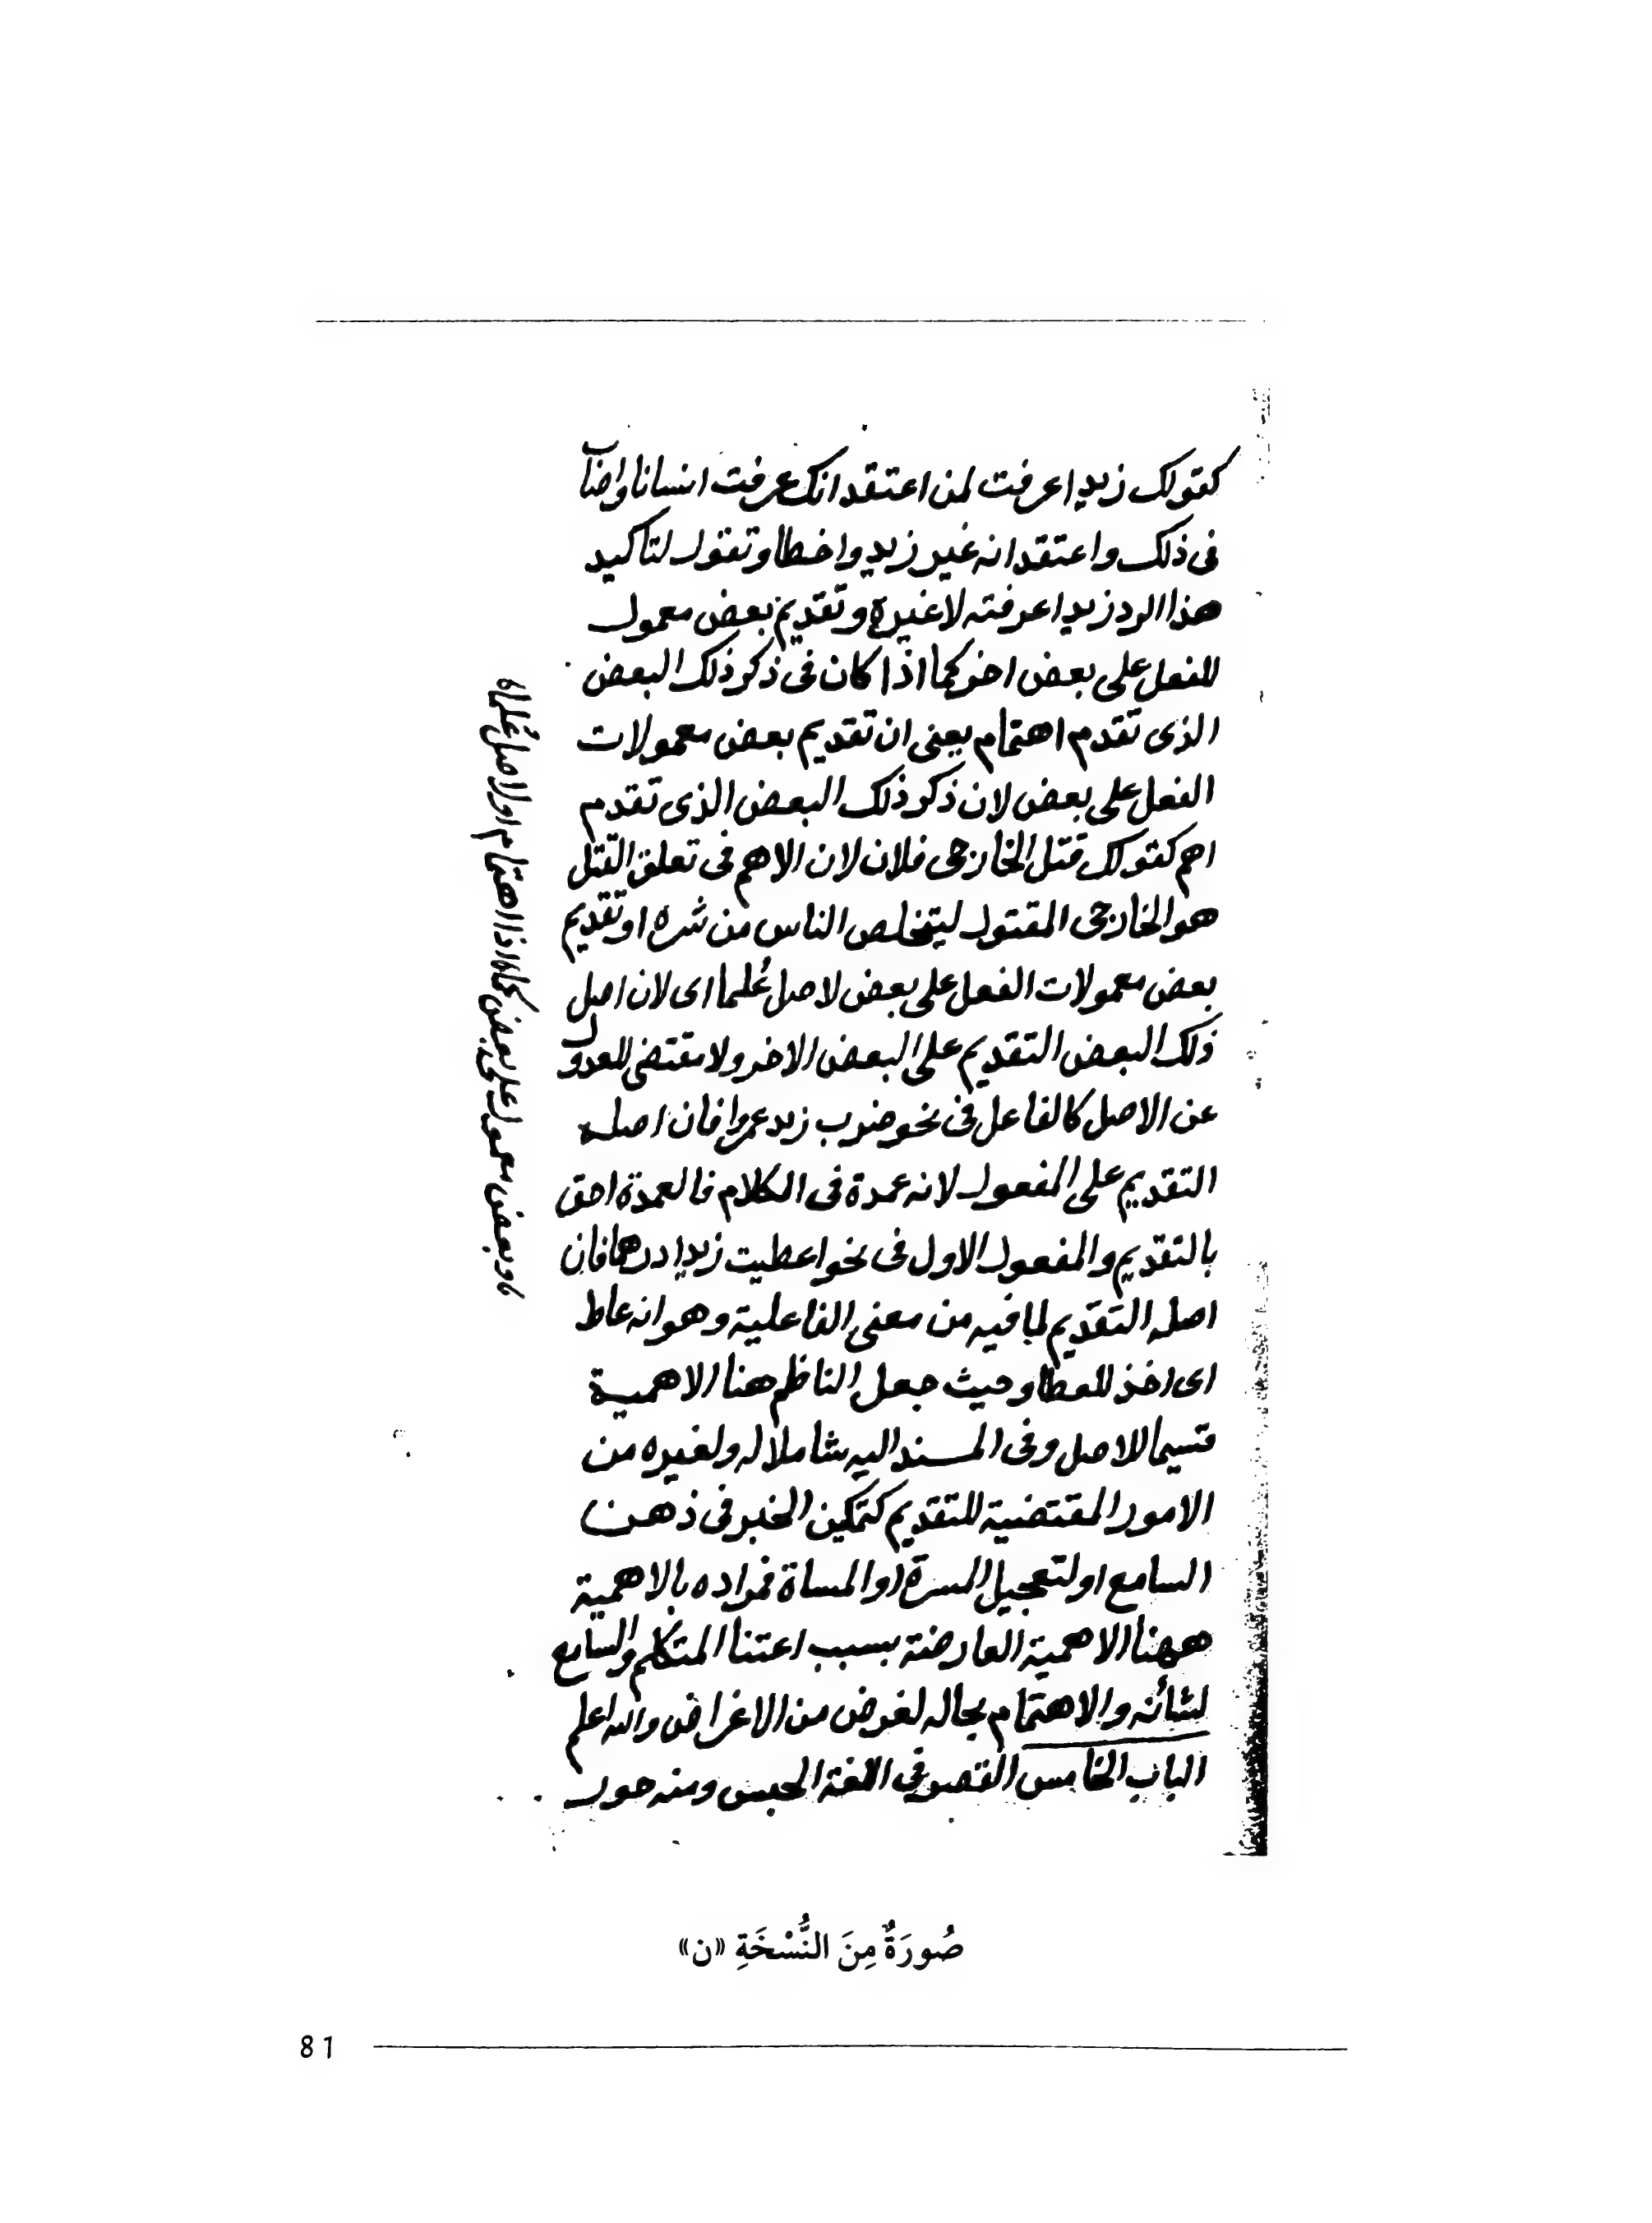 كقولك زيدا عرفت لمن اعتقد انك عرفت انسانا واصاب
فى ذلك واعتقد انه غير زيد واخطا وتقول لتاكيد
هذا الرد زيدا عرفته لا غيره وتقديم بعض معمول
للفعل على بعض اخر كما اذا كان فى ذكر ذلك البعض
الذى تقدم اهتمام يعنى ان تقديم بعض معمولات
الفعل على بعض لان ذكر ذلك البعض الذى تقدم
اهم كقولك قتل الخارجى فلان لان الاهم فى تعلق القتل
هو الخارجى المقتول ليتخلص الناس من شره او تقديم
بعض معمولات الفعل على بعض لاصل عُلما اى لان اصل
ذلك البعض التقديم على البعض الاخر ولا مقتضى للعدول
عن الاصل كالفاعل فى نحو ضرب زيد عمروا فان اصله
التقديم على المفعول لانه عمدة فى الكلام فالعمدة احق
بالتقديم والمفعول الاول فى نحو اعطيت زيدا درهما فان
اصله التقديم لما فيه من معنى الفاعلية وهو انه عاط
اى اخذ للعطا وحيث جعل الناظم هنا الاهمية
قسيما للاصل وفى المسند اليه شاملا له ولغيره من
الامور المقتضية للتقديم كتمكين الخبر فى ذهن
السامع او لتعجيل المسرة او المساة فمراده بالاهمية
ههنا الاهمية العارضة بسبب اعتنا المتكلم والسامع
لشأنه والاهتمام بحاله لغرض من الاغراض والله اعلم
الباب الخامس القصر فى اللغة الحبس ومنه حور
وبعض معمول على بعض كما اذا اهتمام او لاصل عُلما
صُورَةٌ مِنَ النُّسْخَةِ «ن»
81